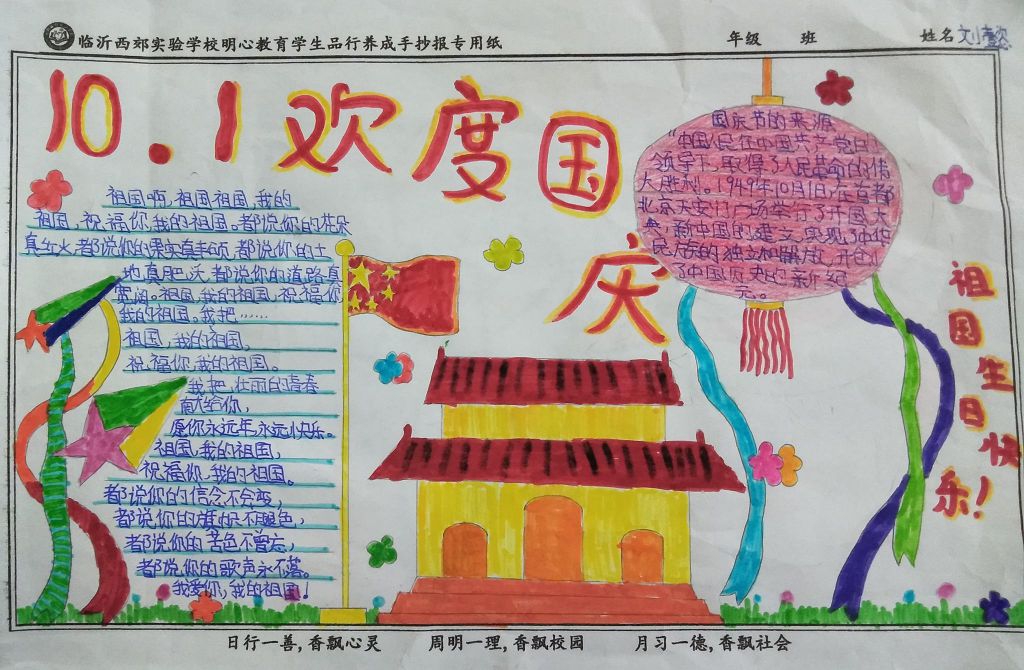 临沂西郊实验学校明心教育学生品行养成手抄报专用纸
年级 班 姓名
10.1欢度国
庆
祖国啊,祖国祖国,我的
祖国,祝福你,我的祖国。都说你的花朵
真红火,都说你的果实真丰硕,都说你的土
地真肥沃,都说你的道路真
宽阔。祖国,我的祖国,祝福你
我的祖国。我把……
祖国,我的祖国,
祝福你,我的祖国。
我把,壮丽的青春
献给你,
愿你永远年永远小快乐。
祖国,我的祖国,
祝福你,我的祖国。
都说你的信念不会变,
都说你的旗帜不褪色,
都说你的苦色不曾忘,
都说你的歌声永不落。
我爱你,我的祖国!
国庆节的来源
"中国人民在中国共产党的
领导下,取得了人民革命的伟
大胜利。1949年10月1日,在首都
北京天安门广场举行了开国大
典,新中国的建立,实现了中华
民族的独立和解放,开创
了中国历史的新纪
元。
祖国生日快乐!
日行一善,香飘心灵 周明一理,香飘校园 月习一德,香飘社会